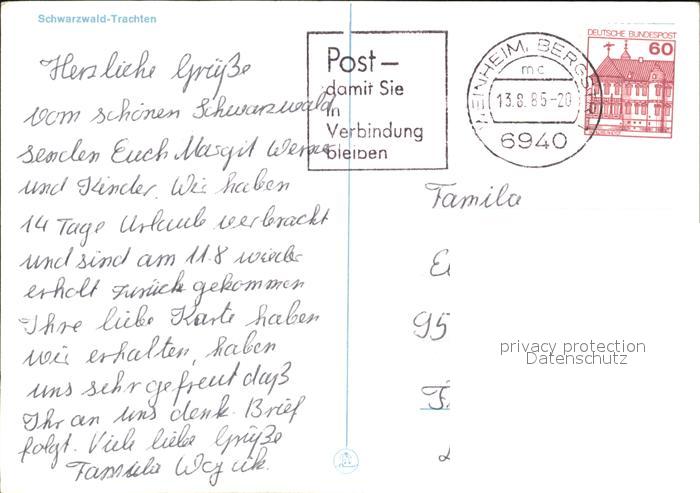 Schwarzwald-Trachten
Herzliche Grüße
vom schönen Schwarzwald
senden Euch Margit Werner
und Kinder. Wir haben
14 Tage Urlaub verbracht
und sind am 11.8 wieder
erholt zurück gekommen
Ihre liebe Karte haben
wir erhalten, haben
uns sehr gefreut daß
Ihr an uns denk. Brief
folgt. Viele liebe Grüße
Familie
Post–
damit Sie
in
Verbindung
bleiben
WEINHEIM, BERGSTR
mc
13.8.85-20
6940
DEUTSCHE BUNDESPOST
60
Familie
95
privacy protection
Datenschutz